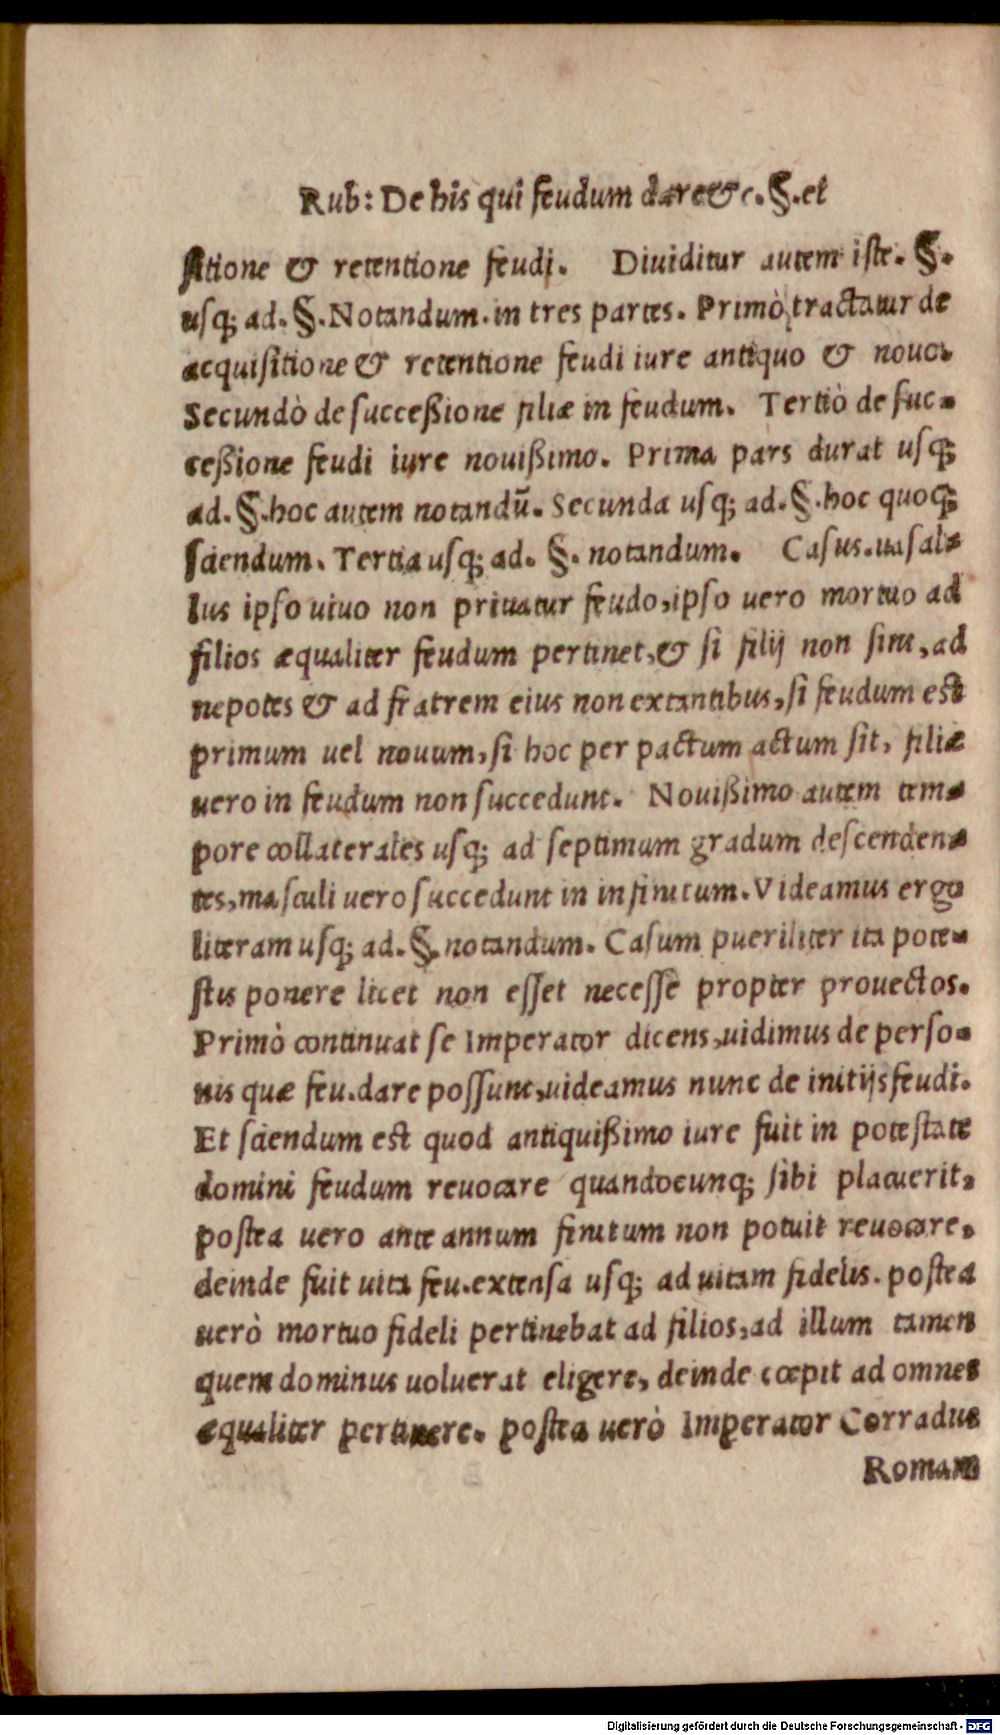 Rub: De his qui feudum dare &c. §. et
sitione & retentione feudi. Diuiditur autem iste. §.
usq; ad. §. Notandum. in tres partes. Primò, tractatur de
acquisitione & retentione feudi iure antiquo & nouo.
Secundò de successione filiæ in feudum. Tertiò de suc-
cessione feudi iure nouissimo. Prima pars durat usq;
ad. §. hoc autem notandū. Secunda usq; ad. §. hoc quoq;
sciendum. Tertia usq; ad. §. notandum. Casus. uasal-
lus ipso uiuo non priuatur feudo, ipso uero mortuo ad
filios æqualiter feudum pertinet, & si filij non sint, ad
nepotes & ad fratrem eius non extantibus, si feudum est
primum uel nouum, si hoc per pactum actum sit, filiæ
uero in feudum non succedunt. Nouissimo autem tem-
pore collaterales usq; ad septimum gradum descenden-
tes, masculi uero succedunt in infinitum. Videamus ergo
literam usq; ad. §. notandum. Casum pueriliter ita pote-
stis ponere licet non esset necesse propter prouectos.
Primò continuat se Imperator dicens, uidimus de perso-
nis quæ feu. dare possunt, uideamus nunc de initijs feudi.
Et sciendum est quod antiquissimo iure fuit in potestate
domini feudum reuocare quandocunq; sibi placuerit,
postea uero ante annum finitum non potuit reuocare,
deinde fuit uita feu. extensa usq; ad uitam fidelis. postea
uerò mortuo fideli pertinebat ad filios, ad illum tamen
quem dominus uoluerat eligere, deinde cœpit ad omnes
æqualiter pertinere. postea uerò Imperator Corradus
Romam
Digitalisierung gefördert durch die Deutsche Forschungsgemeinschaft - DFG